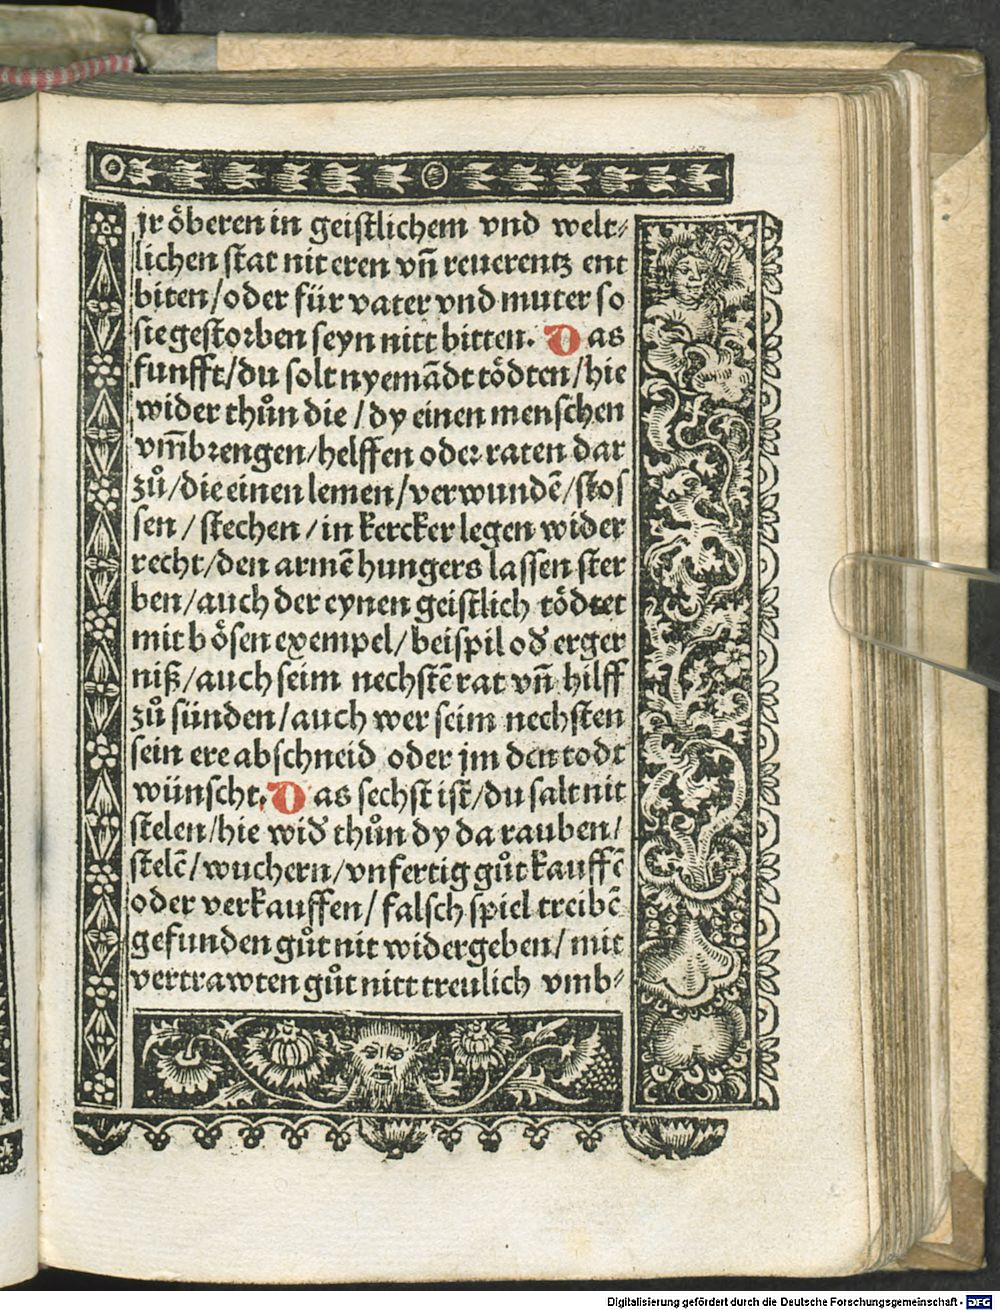 jr öberen in geistlichem vnd welt⸗
lichen stat nit eren vn̄ reuerentz ent
biten/oder für vater vnd muter so
sie gestorben seyn nitt bitten. Das
funfft/du solt nyemādt tödten/hie
wider thůn die/dy einen menschen
vm̄brengen/helffen oder raten dar
zů/die einen lemen/verwundē/stos
sen/stechen/in kercker legen wider
recht/den armē hungers lassen ster
ben/auch der eynen geistlich tödtet
mit bösen exempel/beispil od̕ erger
niß/auch seim nechstē rat vn̄ hilff
zů sünden/auch wer seim nechsten
sein ere abschneid oder jm den todt
wünscht. Das sechst ist/du salt nit
stelen/hie wid̕ thůn dy da rauben/
stelē/wuchern/vnfertig gůt kauffē
oder verkauffen/falsch spiel treibē
gefunden gůt nit widergeben/mit
vertrawten gůt nitt treulich vmb⸗
Digitalisierung gefördert durch die Deutsche Forschungsgemeinschaft - DFG